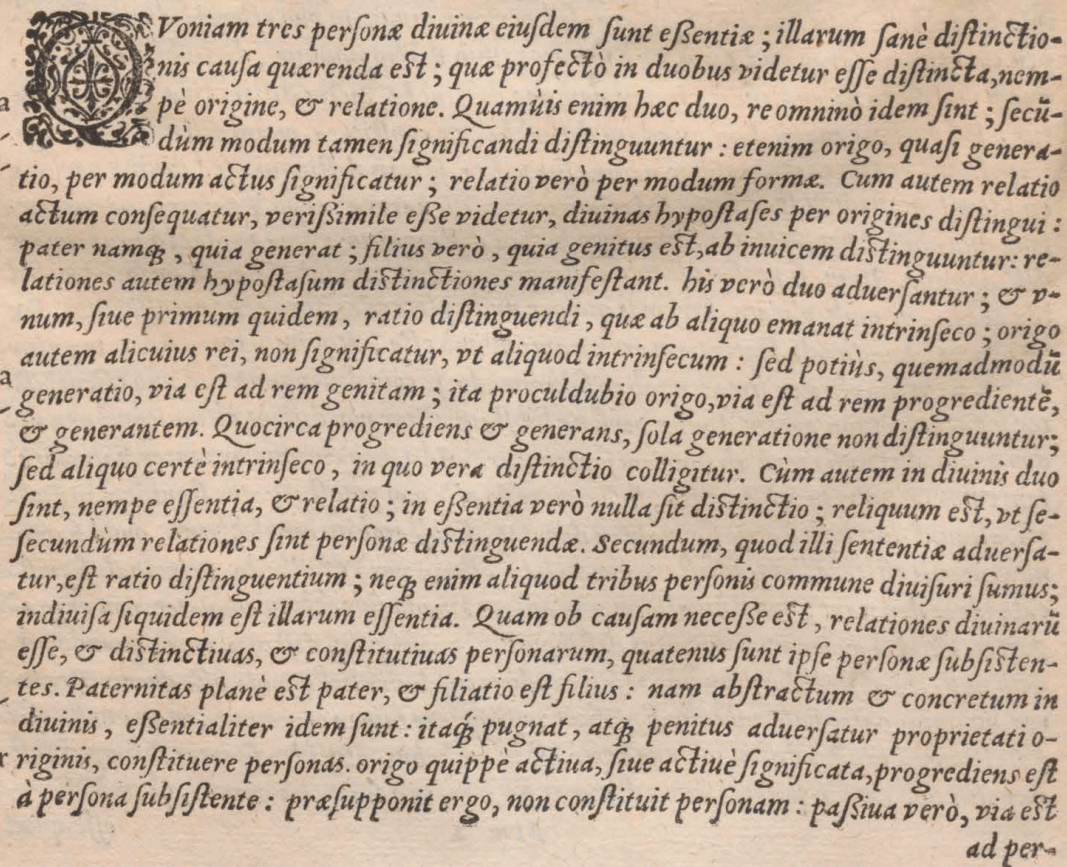 QVoniam tres personæ diuinæ eiusdem sunt eßentiæ; illarum sanè distinctio-
nis causa quærenda est; quæ profectò in duobus videtur esse distincta, nem-
pè origine, & relatione. Quamùis enim hæc duo, re omninò idem sint; secū-
dùm modum tamen significandi distinguuntur: etenim origo, quasi genera-
tio, per modum actus significatur; relatio verò per modum formæ. Cum autem relatio
actum consequatur, verißimile eße videtur, diuinas hypostases per origines distingui:
pater namq́;, quia generat; filius verò, quia genitus est, ab inuicem distinguuntur: re-
lationes autem hypostasum distinctiones manifestant. his verò duo aduersantur; & v-
num, siue primum quidem, ratio distinguendi, quæ ab aliquo emanat intrinseco; origo
autem alicuius rei, non significatur, vt aliquod intrinsecum: sed potiùs, quemadmodū
generatio, via est ad rem genitam; ita proculdubio origo, via est ad rem progredientē,
& generantem. Quocirca progrediens & generans, sola generatione non distinguuntur;
sed aliquo certè intrinseco, in quo vera distinctio colligitur. Cùm autem in diuinis duo
sint, nempe essentia, & relatio; in eßentia verò nulla sit distinctio; reliquum est, vt se-
secundùm relationes sint personæ distinguendæ. Secundum, quod illi sententiæ aduersa-
tur, est ratio distinguentium; neq; enim aliquod tribus personis commune diuisuri sumus;
indiuisa siquidem est illarum essentia. Quam ob causam neceße est, relationes diuinarū
esse, & distinctiuas, & constitutiuas personarum, quatenus sunt ipse personæ subsisten-
tes. Paternitas planè est pater, & filiatio est filius: nam abstractum & concretum in
diuinis, eßentialiter idem sunt: itaq́; pugnat, atq; penitus aduersatur proprietati o-
riginis, constituere personas. origo quippè actiua, siue actiuè significata, progrediens est
à persona subsistente: præsupponit ergo, non constituit personam: paßiua verò, via est
ad per-